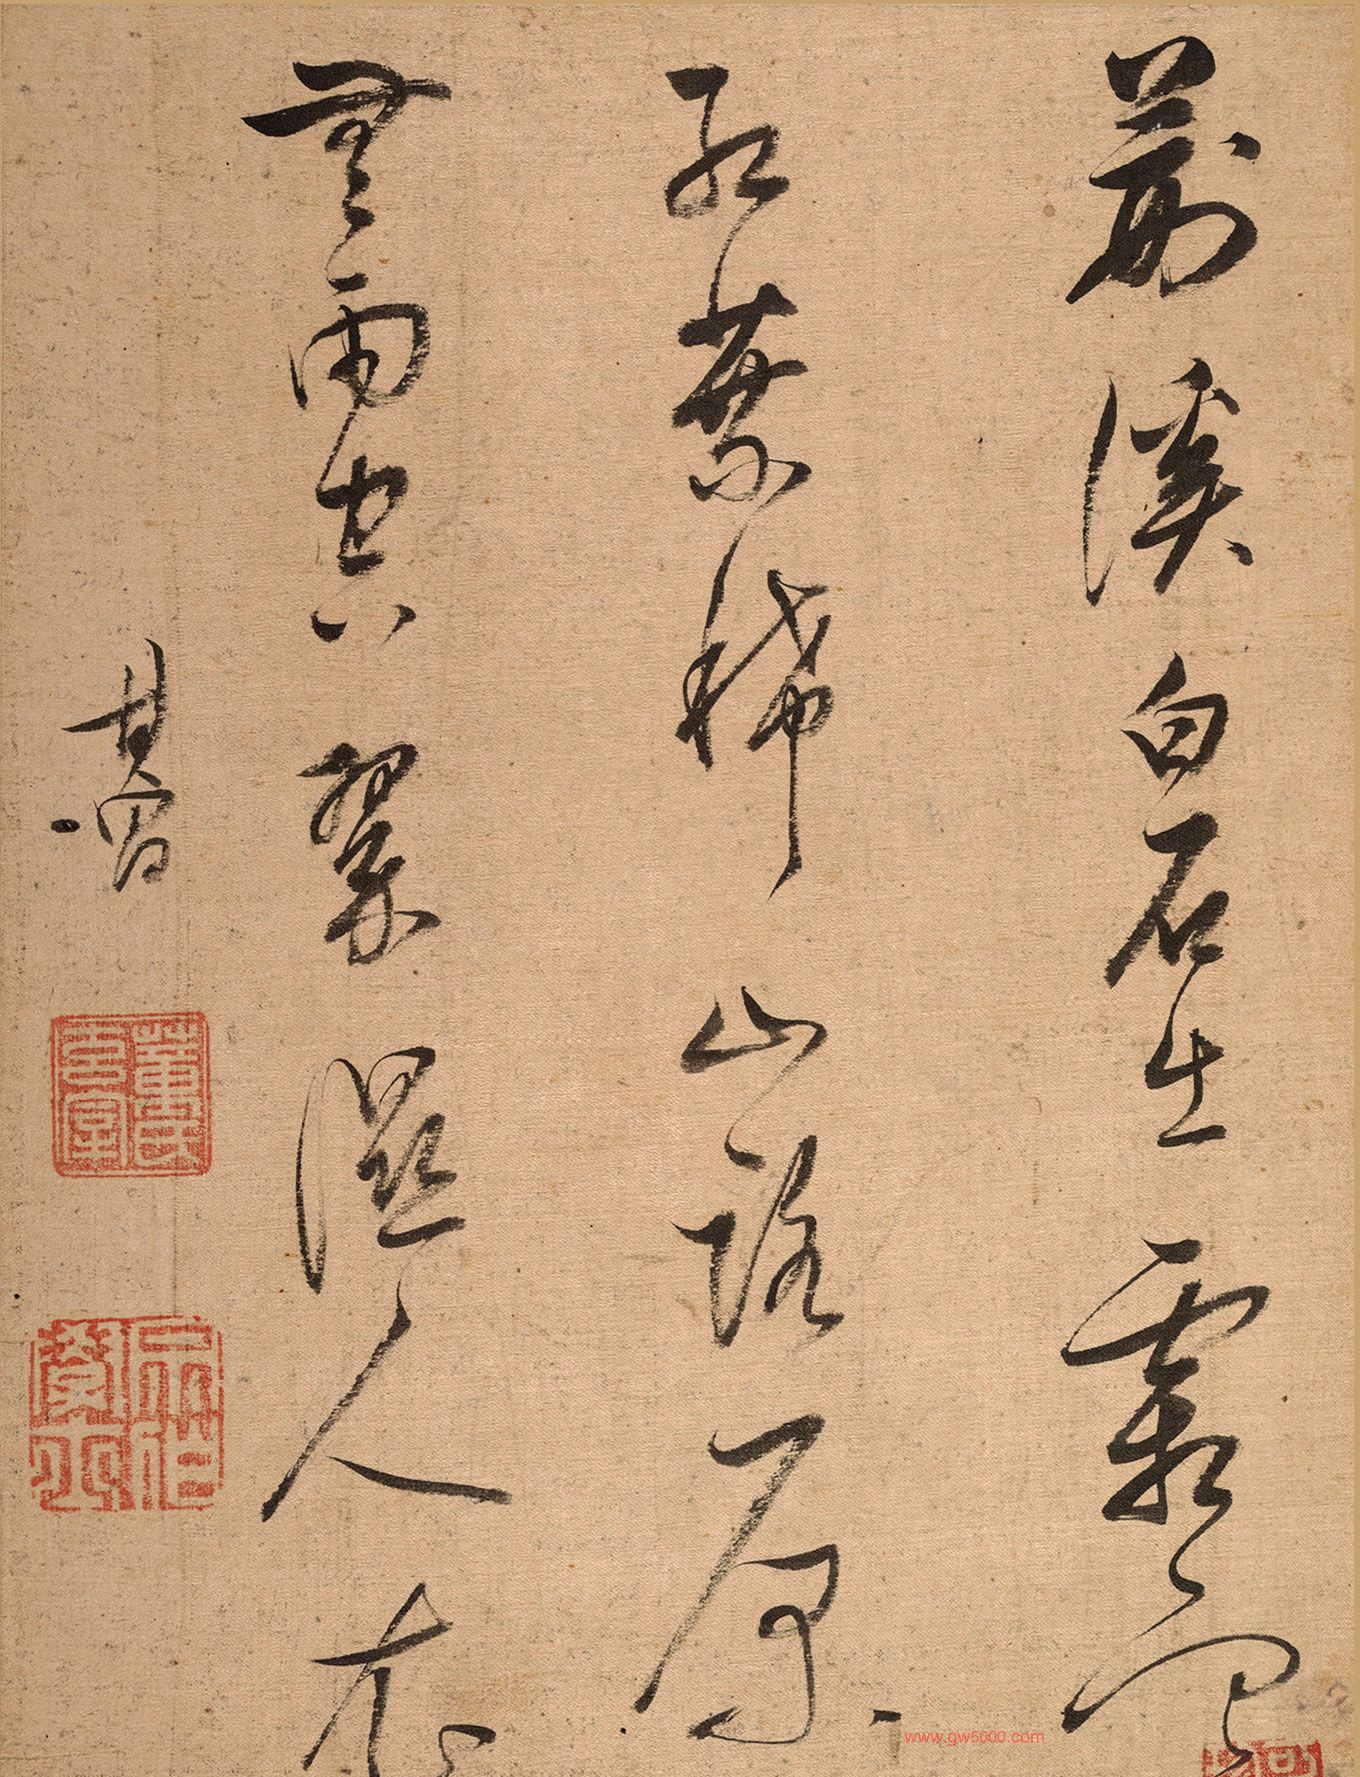 荊溪白石生霜
紅葉稀山路原
無雨空翠濕人衣
其昌
董氏玄宰
www.gw5000.com